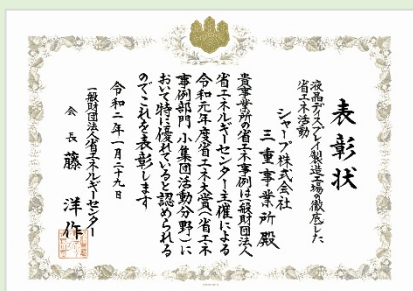 表彰状
液晶ディスプレイ製造工場の徹底した
省エネ活動
シャープ株式会社
三重事業所殿
貴事業所の省エネ事例は一般財団法人
省エネルギーセンター主催による
令和元年度省エネ大賞(省エネ
事例部門 小集団活動分野)に
おいて特に優れていると認められる
のでこれを表彰します
令和二年一月二十九日
一般財団法人省エネルギーセンター
会長 藤洋作